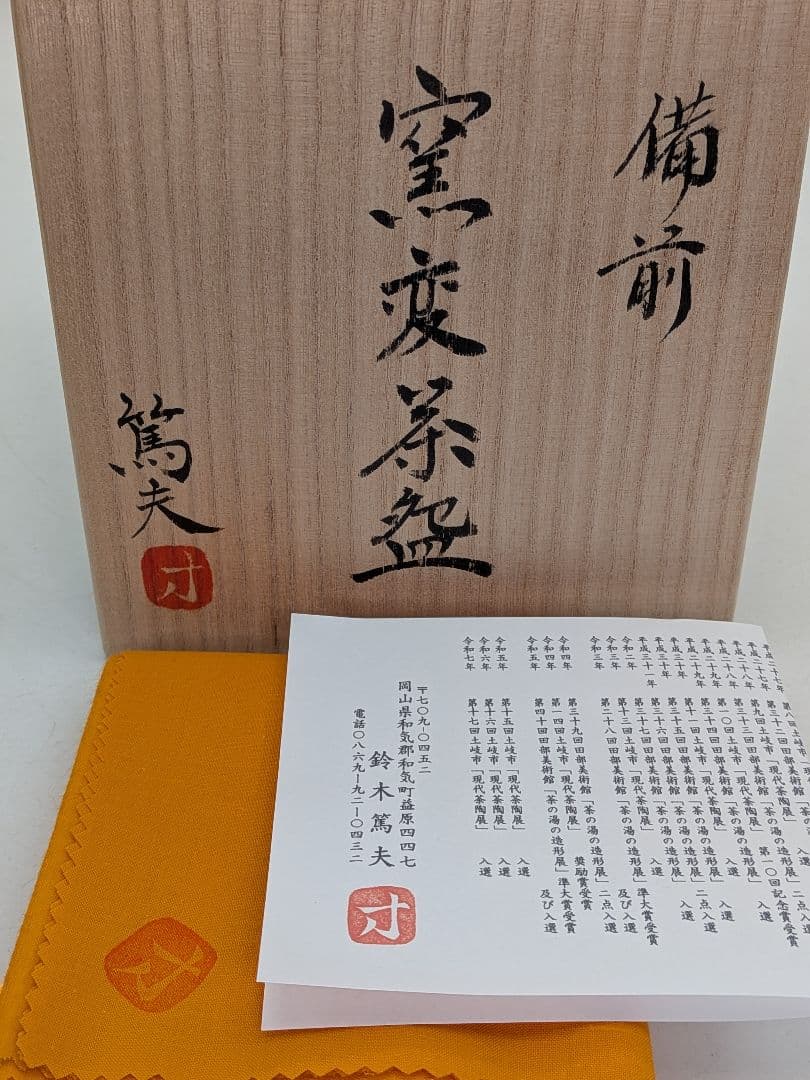 備前
窯変茶盌
篤夫
平成二十七年 第八回土岐市「現
平成二十七年 第三十二回田部美術館「茶の湯の造形展」
平成二十八年 第九回土岐市「現代茶陶展」
第三十三回田部美術館「茶の湯の造形展」
第一〇回土岐市「現代茶陶展」 入選
平成二十九年 第三十四回田部美術館「茶の湯の造形展」 二点入選
平成三十年 第十一回土岐市「現代茶陶展」 入選
第三十五回田部美術館「茶の湯の造形展」
平成三十一年 第三十六回田部美術館「茶の湯の造形展」 入選
令和二年 第三十七回田部美術館「茶の湯の造形展」 準大賞受賞
第十三回土岐市「現代茶陶展」 及び入選
令和三年 第二十八回田部美術館「茶の湯の造形展」 二点入選
令和四年 第三十九回田部美術館「茶の湯の造形展」 奨励賞受賞
令和四年 第一四回土岐市「現代茶陶展」
令和五年 第四十回田部美術館「茶の湯の造形展」 準大賞受賞 及び入選
令和五年 第十五回土岐市「現代茶陶展」 入選
令和六年 第十六回土岐市「現代茶陶展」 入選
令和七年 第十七回土岐市「現代茶陶展」 入選
〒七〇九ー〇四五二
岡山県和気郡和気町益原四四七
鈴木篤夫
電話〇八六九ー九二ー〇四三二